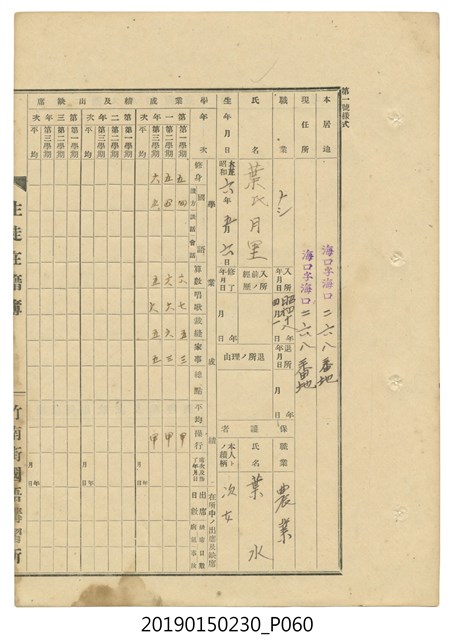 第一號樣式
本居地
海口字海口二六八番地
現住所
海口字海口二六八番地
職業
ナシ
入所年月日
退所年月日
年 月 日
保護者
職業
農業
氏名
葉氏月里
入所前ノ履歷
退所ノ理由
氏名
葉水
生年月日
大正
昭和
六年
六日
修了年月日
年 月 日
本人トノ續柄
次女
學年
學業成績及出缺席
學業
或
績
在所中ノ出席及缺席
次
修身
國語
算數
唱歌
裁縫
家事
總點
平均
操行
出席日數
第一學期
五 四 六 七 五 三 甲
第二學期
五 六 六 三 甲
第三學期
六 五 五 六 五 五 甲
平均
第一學期
第二學期
第三學期
平均
第一學期
第二學期
第三學期
平均
生徒在籍簿
竹南街國語講習所
20190150230_P060